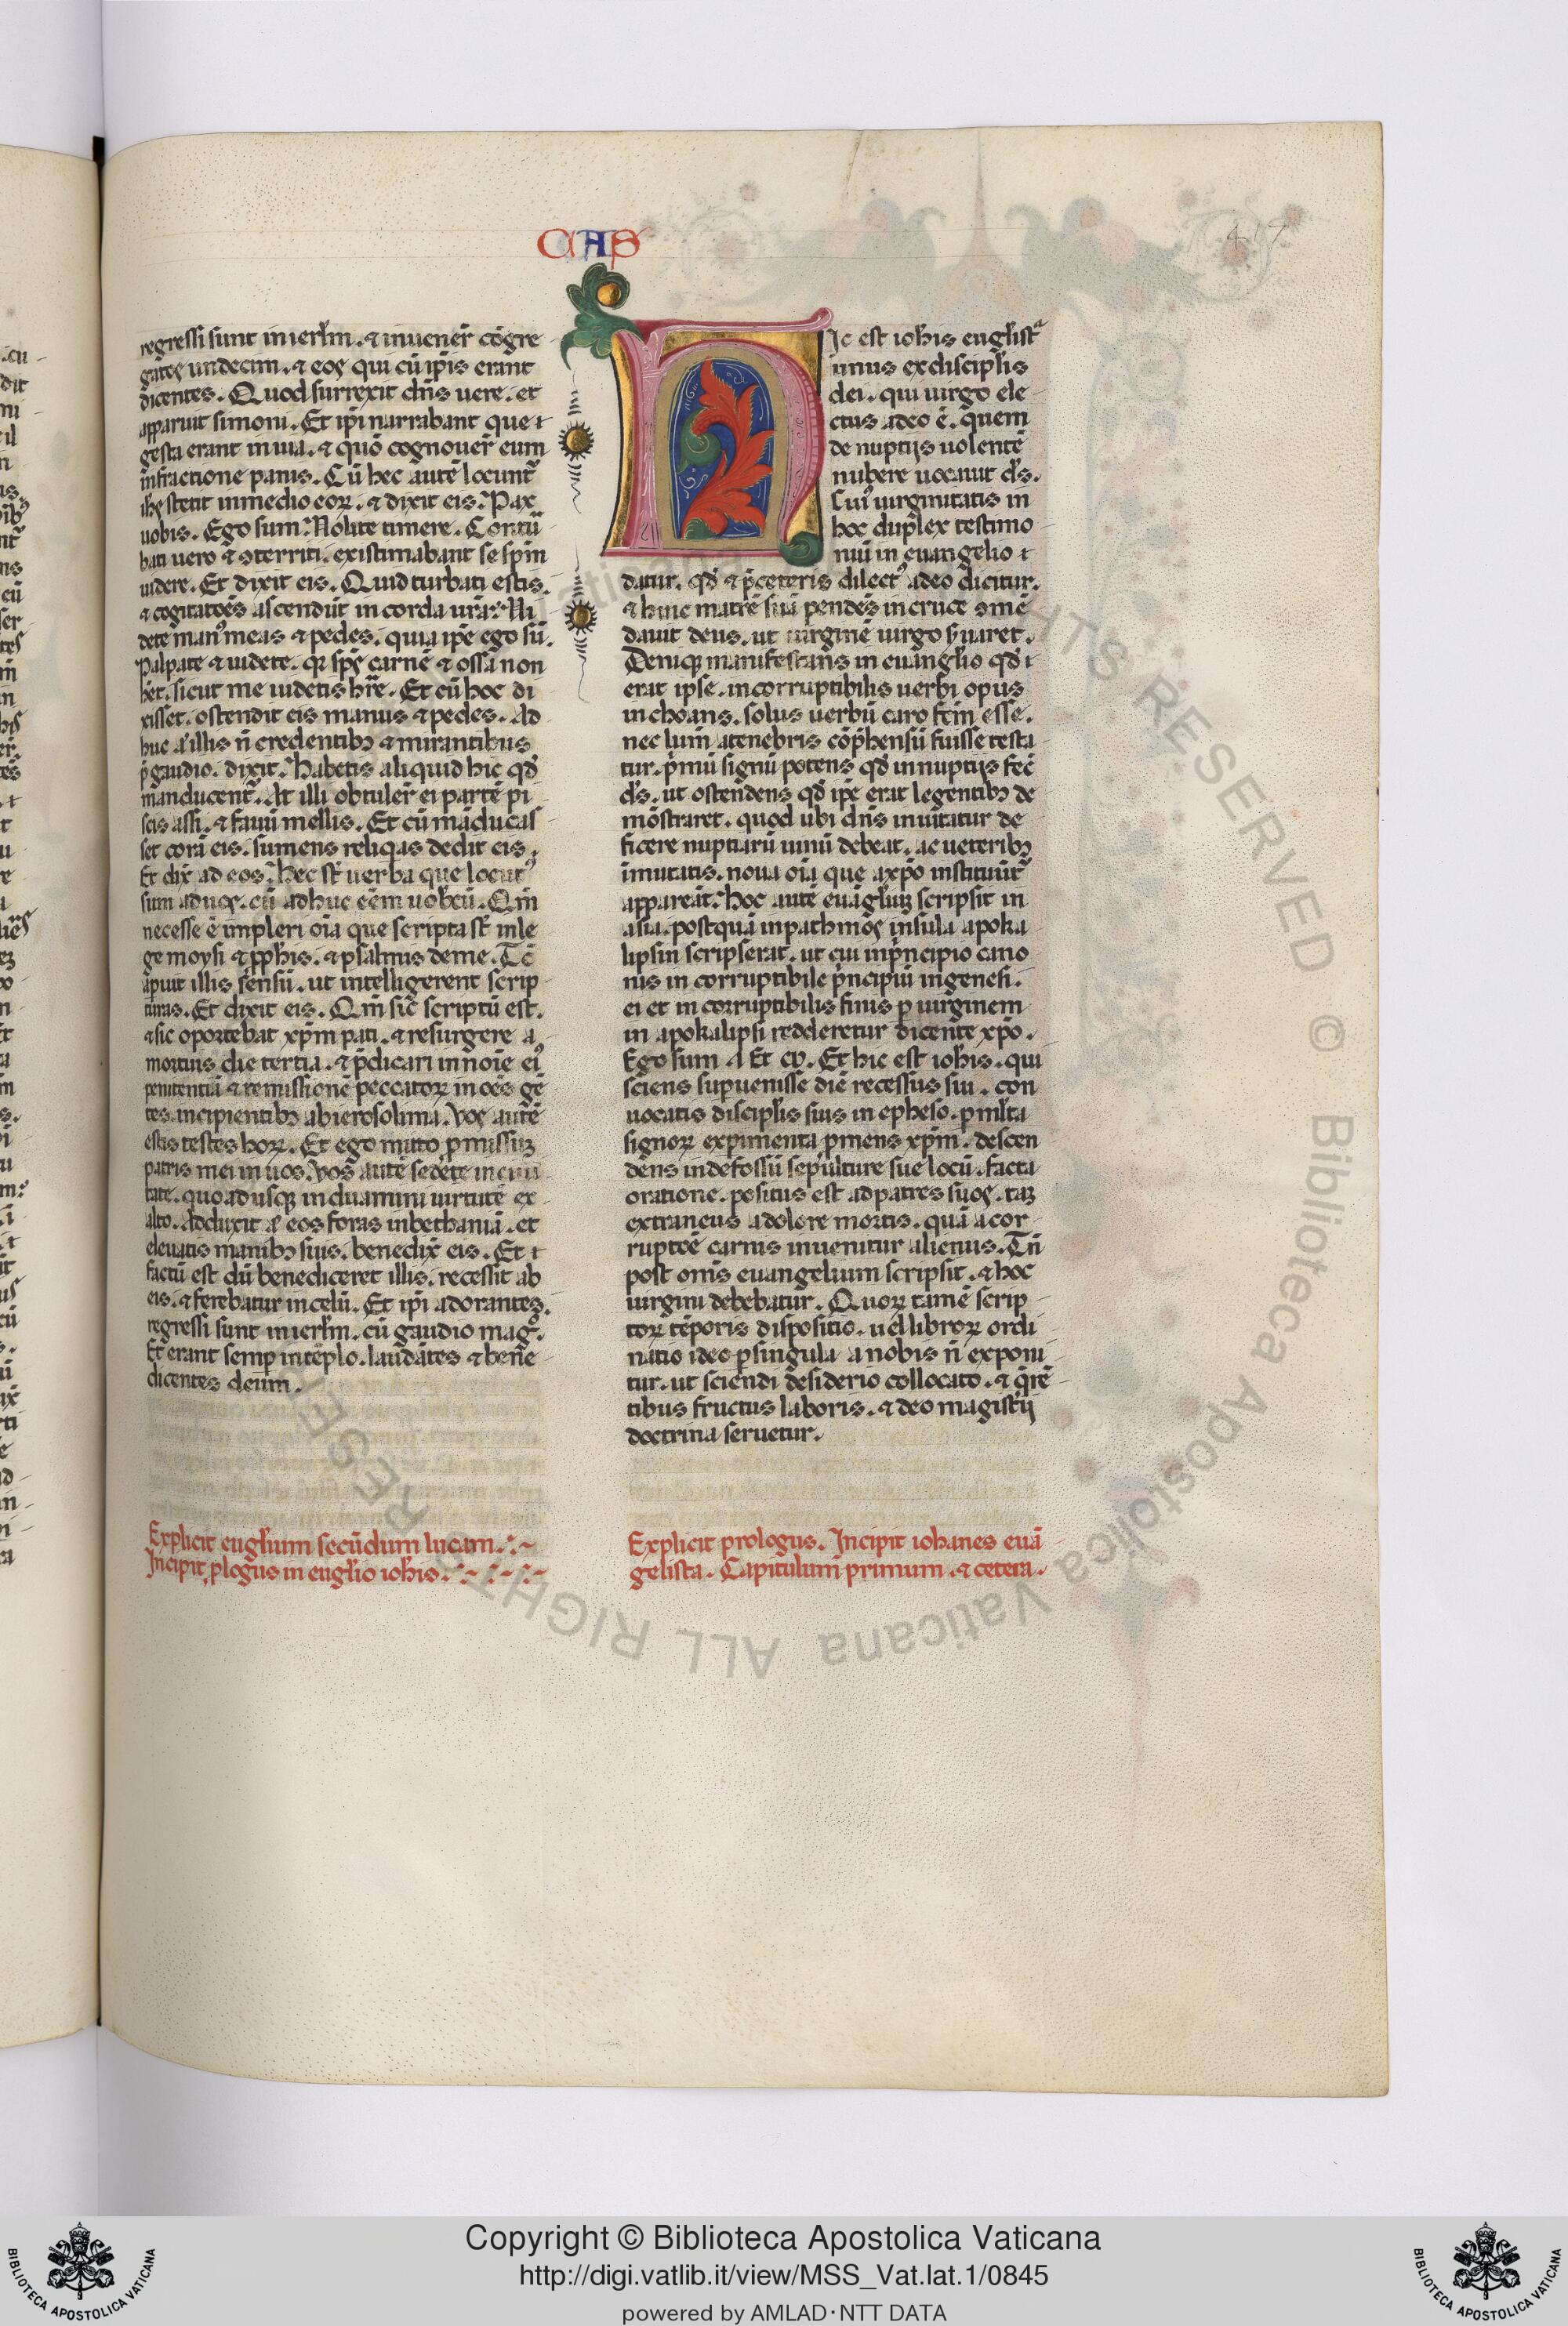 CAS
417
regressi sunt in ierlm̄. ⁊ inuener̄ cōgre
gatos undecim. ⁊ eos qui cū ip̄is erant
dicentes. Quod surrexit dn̄s uere. et
apparuit simoni. Et ip̄i narrabant que
gesta erant in uia. ⁊ quō cognouer̄ eum
in fractione panis. Cū hec autē locunt᷑
ihs̄ stetit in medio eoꝝ. ⁊ dixit eis. Pax
uobis. Ego sum. Nolite timere. Contu᷑
bati uero ⁊ oterriti. existimabant se sp̄m
uidere. Et dixit eis. Quid turbati estis.
⁊ cogitatōēs ascendūt in corda ur̄a. Ui
dete manꝰ meas ⁊ pedes. quia ip̄e ego sū.
Palpate ⁊ uidete. qꝛ sp̄s carnē ⁊ ossa non
h̄et. sicut me uidetis hr̄e. Et cū hoc di
xisset. ostendit eis manus ⁊ pedes. Ad
huc aͥ illis n̄ credentibꝫ ⁊ mirantibus
p̄ gaudio. dixit. Habetis aliquid hic qđ
manducent᷑. At illi obtuler̄ ei partē pi
scis assi. ⁊ fauū mellis. Et cū māducas
set corā eis. sumens reliq̄as dedit eis.
Et dix̄ ad eos. Hec st̄ uerba que locutꝰ
sum ad uos. cū adhuc eēm uobcū. Qm̄
necesse ē impleri oīa que scripta st̄ in le
ge moysi ⁊ ꝓphis. ⁊ psalmis de me. Tc̄
apuit illis sensū. ut intelligerent scrip
turas. Et dixit eis. Qm̄ sic̄ scriptū est.
⁊ sic oportebat xp̄m pati. ⁊ resurgere a
mortuis die tertia. ⁊ p̄dicari in noīe eiꝰ
penitentiā ⁊ remissionē peccatoꝝ in oēs gē
tes. incipientibꝫ ab ierosolima. Vos autē
estis testes hoꝝ. Et ego mitto ꝓmissuꝫ
patris mei in uos. Vos autē sedete in ciui
tate. quoadusqꝫ induamini uirtutē ex
alto. Adduxit aͥ eos foras in bethaniā. et
eleuatis manibꝫ suis. benedix̄ eis. Et
factū est dū benediceret illis. recessit ab
eis. ⁊ ferebatur in celū. Et ip̄i adorantes.
regressi sunt in ierlm̄. cū gaudio magͦ.
Et erant semꝑ in tēplo. laudātes ⁊ bene
dicentes deum.
Explicit eugłium secūdum lucam.
Incipit ꝓlogus in eugłio iohis.
Hic est iohis eugłistͣ
unus ex discipłis
dei. qui uirgo ele
ctus a deo ē. quem
de nuptijs uolentē
nubere uocauit ds̄.
Cuiꝰ uirginitatis in
hoc duplex testimo
niū in euangelio
datur. qđ ⁊ p̄ ceteris dilectꝰ a deo dicitur.
⁊ huic matrē suā pendēs in cruce ōmē
dauit deus. ut uirginē uirgo s̄uaret.
Deniqꝫ manifestans in euangłio qđ
erat ipse. incorruptibilis uerbi opus
inchoans. solus uerbū caro fc̄m esse.
nec lum̄ a tenebris cōp̄hensū fuisse testa
tur. p̄mū signū potens qđ in nuptijs fec̄
ds̄. ut ostendens qđ ip̄e erat legentibꝫ de
mōstraret. quod ubi dn̄s inuitatur de
ficere nuptiarū uinū debeat. ac ueteribꝫ
īmutatis. noua oīa que a xp̄o instituūt᷑
appareāt. Hoc autē euāgłiuꝫ scripsit in
asia. postquā in pathmos insula apoka
lipsin scripserat. ut cui in p̄ncipio cano
nis in corruptibile p̄ncipiū in genesi.
ei et in corruptibilis finis ꝑ uirginem
in apokalipsi redderetur dicente xp̄o.
Ego sum A Et ω. Et hic est iohis. qui
sciens supuenisse diē recessus sui. con
uocatis discipłis suis in epheso. ꝑ mlta
signoꝝ experimenta ꝓmens xp̄m. descen
dens in defossū sepulture sue locū. facta
oratione. positus est ad patres suos. taꝫ
extraneus a dolore mortis. quā a cor
ruptōē carnis inuenitur alienus. Tn̄
post om̄s euangelium scripsit. ⁊ hoc
uirgini debebatur. Quoꝝ tamē scrip
toꝝ tēporis dispositio. uel libroꝝ ordi
natio ideo ꝑ singula a nobis n̄ exponi
tur. ut sciendi desiderio collocato. ⁊ q̄rē
tibus fructus laboris. ⁊ deo magist̄ij
doctrina seruetur.
Explicit prologus. Incipit iohanes euā
gelista. Capitulum primum. ⁊ cetera.
ALL RIGHTS RESERVED © Biblioteca Apostolica Vaticana
Copyright © Biblioteca Apostolica Vaticana
http://digi.vatlib.it/view/MSS_Vat.lat.1/0845
powered by AMLAD·NTT DATA
BIBLIOTECA APOSTOLICA VATICANA
BIBLIOTECA APOSTOLICA VATICANA